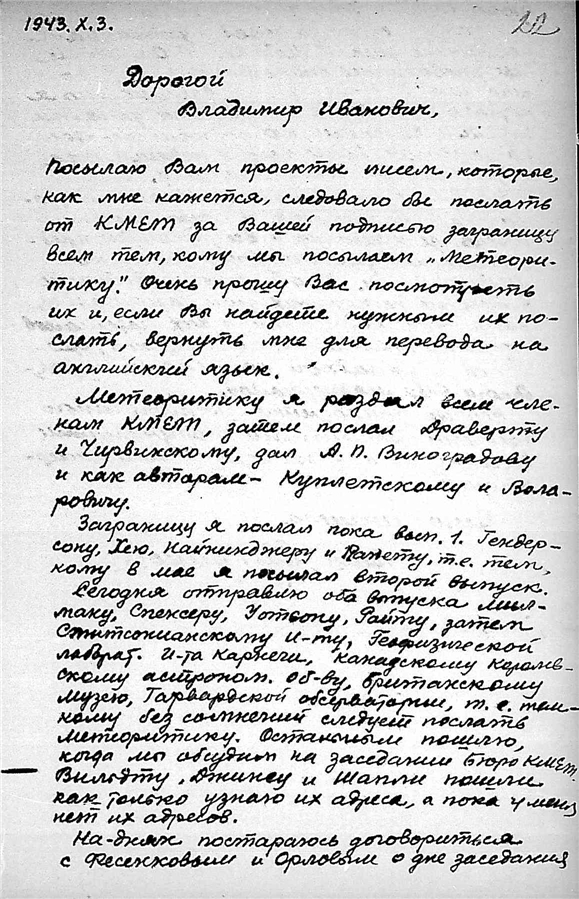 1943.X.3.
22
Дорогой
Владимир Иванович,
Посылаю Вам проекты писем, которые,
как мне кажется, следовало бы послать
от КМЕТ за Вашей подписью заграницу
всем тем, кому мы посылаем „Метеори-
тику". Очень прошу Вас посмотреть
их и, если Вы найдете нужным их по-
слать, вернуть мне для перевода на
английский язык.
Метеоритику я раздал всем чле-
нам КМЕТ, затем послал Драверту
и Чирвинскому, дал А. П. Виноградову
и как авторам - Куплетскому и Вола-
ровичу.
Заграницу я послал пока вып. 1. Гендер-
сону, Хею, Найнинджеру и Панету, т.е. тем,
кому в мае я посылал второй выпуск.
Сегодня отправлю оба выпуска Мил-
ману, Спенсеру, Уотсону, Райту, затем
Смитсонианскому и-ту, Геофизической
лаборат. И-та Карнеги, Канадскому королев-
скому астроном. об-ву, Британскому
музею, Гарвардской обсерватории, т.е. тем,
кому без сомнений следует послать
метеоритику. Остальным пошлю,
когда мы обсудим на заседании бюро КМЕТ.
Вильдту, Джинсу и Шапли пошлю
как только узнаю их адреса, а пока у меня
нет их адресов.
На-днях постараюсь договориться
с Фесенковым и Орловым о дне заседания